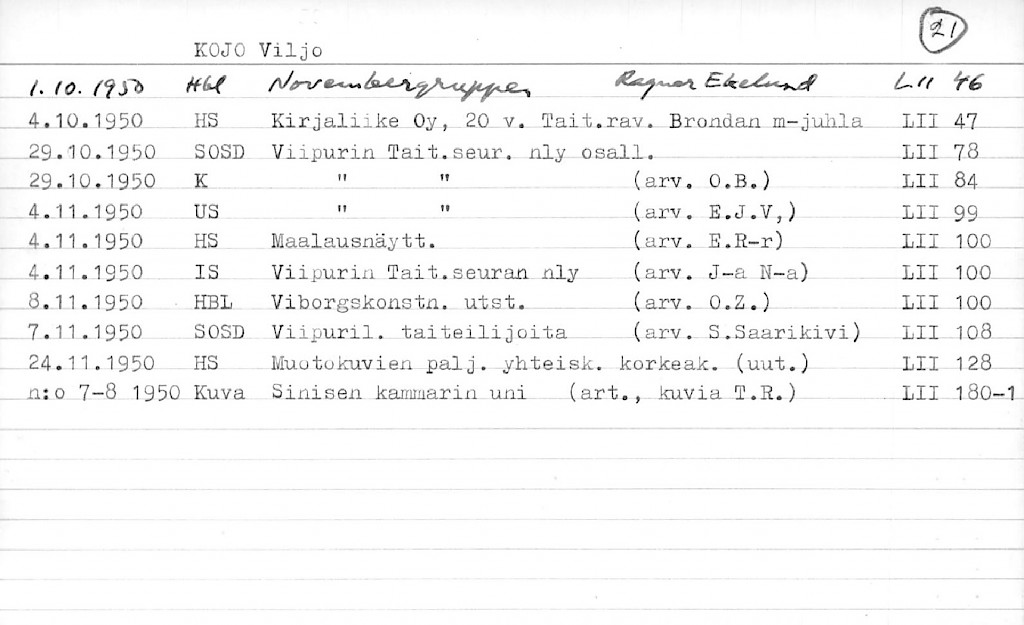 21
KOJO Viljo
1.10.1950 Hbl Novembergruppen Ragnar Ekelund LII 46
4.10.1950 HS Kirjaliike Oy, 20 v. Tait.rav. Brondan m-juhla LII 47
29.10.1950 SOSD Viipurin Tait.seur. nly osall. LII 78
29.10.1950 K " " (arv. O.B.) LII 84
4.11.1950 US " " (arv. E.J.V,) LII 99
4.11.1950 HS Maalausnäytt. (arv. E.R-r) LII 100
4.11.1950 IS Viipurin Tait.seuran nly (arv. J-a N-a) LII 100
8.11.1950 HBL Viborgskonstn. utst. (arv. O.Z.) LII 100
7.11.1950 SOSD Viipuril. taiteilijoita (arv. S.Saarikivi) LII 108
24.11.1950 HS Muotokuvien palj. yhteisk. korkeak. (uut.) LII 128
n:o 7-8 1950 Kuva Sinisen kammarin uni (art., kuvia T.R.) LII 180-1